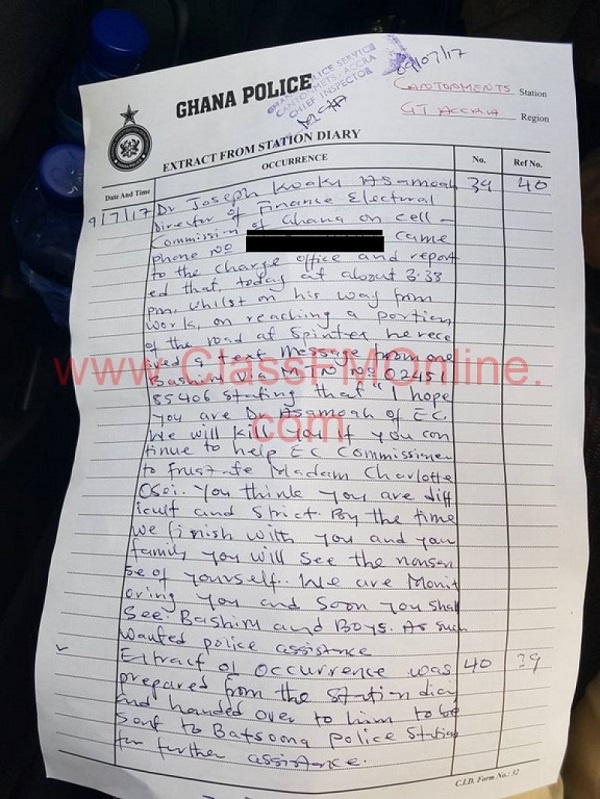 09/07/17
GHANA POLICE
GHANA POLICE SERVICE
CANTONMENTS-ACCRA
CHIEF INSPECTOR
CANTONMENTS Station
GT ACCRA Region
EXTRACT FROM STATION DIARY
Date And Time OCCURRENCE No. Ref No.
9/7/17 Dr Joseph Kwaku Asamoah 39 40
Director of Finance Electoral
Commission of Ghana on cell-
Phone No came
to the charge office and report
ed that, today at about 3:38
pm, whilst on his way from
work, on reaching a portion
of the road at Spintex he rece
ived a text message from one
Bashiru via MTN No 0245
85406 stating that "I hope
you are Dr Asamoah of EC.
We will kill you if you con
tinue to help EC Commissioner
to frustrate Madam Charlotte
Osei. You think you are diff
icult and strict. By the time
we finish with you and your
family you will see the nonsen
se of yourself. We are Monit
oring you and soon you shall
See. Bashiru and Boys. As such
wanted police assistance
Extract of occurrence was 40 39
prepared from the station diary
and handed over to him to be
sent to Batsoona police station
for further assistance.
C.I.D. Form No.: 32
www.ClassFMOnline.
com